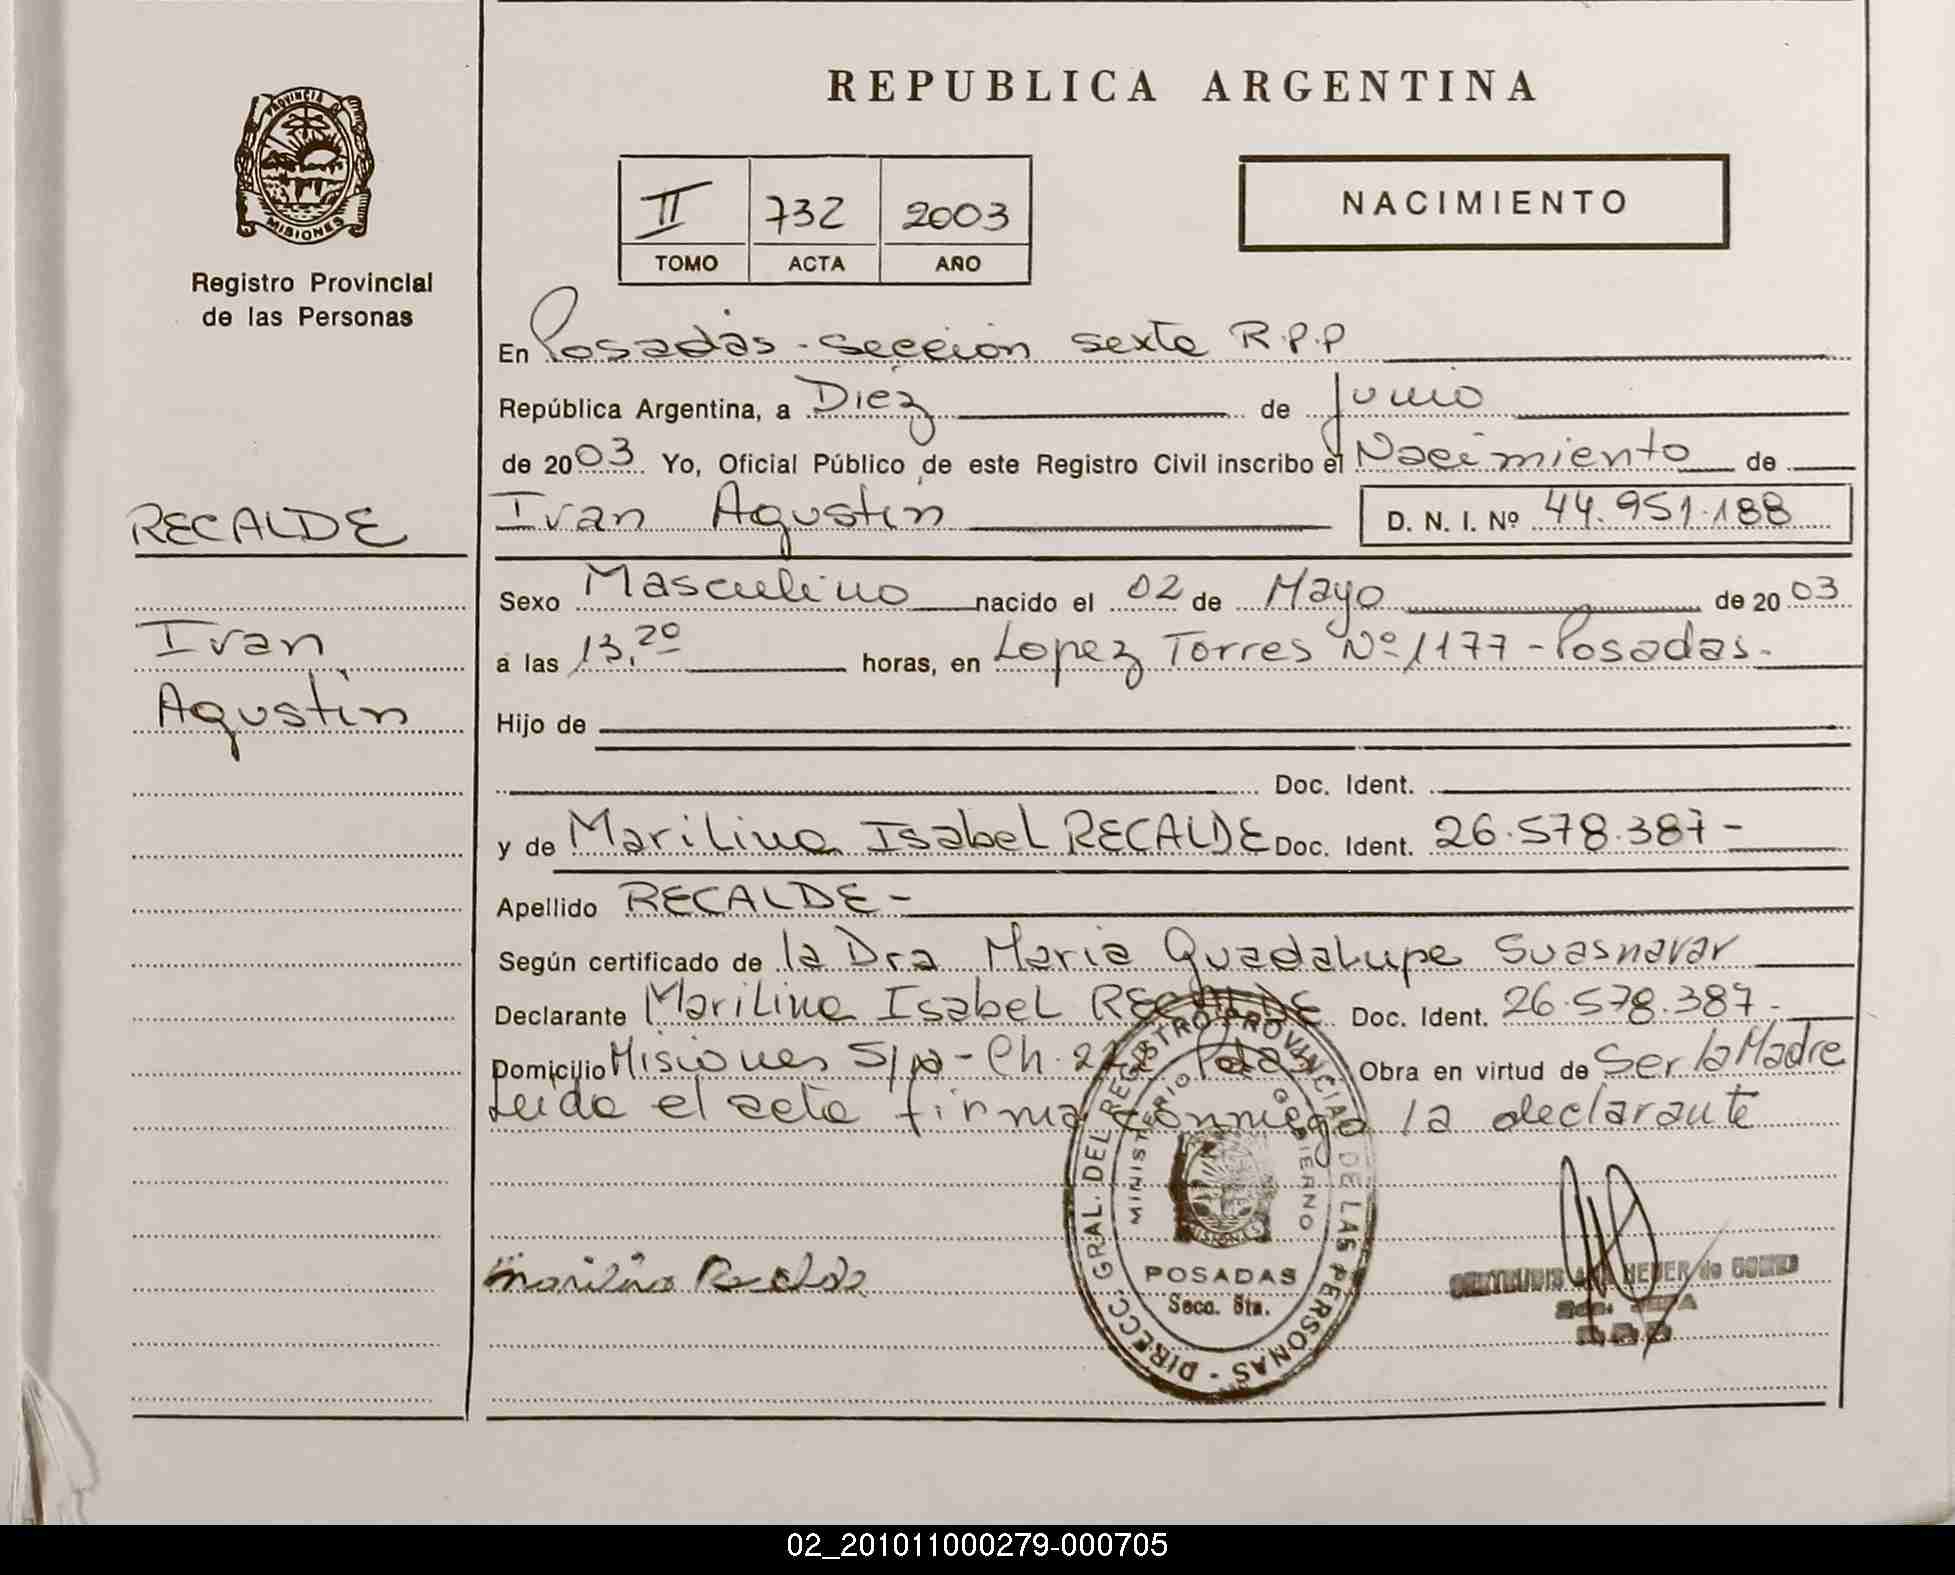 PROVINCIA D
MISIONES
Registro Provincial
de las Personas
RECALDE
Ivan
Agustin
REPUBLICA ARGENTINA
II 732 2003
TOMO ACTA AÑO
NACIMIENTO
En Posadas - sección sexta R.P.P
República Argentina, a Diez de Junio
de 2003 Yo, Oficial Público de este Registro Civil inscribo el Nacimiento de
Ivan Agustin D. N. I. Nº 44.951.188
Sexo Masculino nacido el 02 de Mayo de 2003
a las 13,20 horas, en Lopez Torres Nº 1177 - Posadas.
Hijo de
Doc. Ident.
y de Marilina Isabel RECALDE Doc. Ident. 26.578.387-
Apellido RECALDE-
Según certificado de la Dra Maria Guadalupe Suasnavar
Declarante Marilina Isabel RECALDE Doc. Ident. 26.578.387-
Domicilio Misiones S/Nº - Ch. Pdas Obra en virtud de Ser la Madre
Leida el acta firma conmigo la declarante
DIRECC. GRAL. DEL REGISTRO PROVINCIAL DE LAS PERSONAS -
MINISTERIO GOBIERNO
MISIONES
POSADAS
Secc. 6ta.
Marilina Recalde
02_201011000279-000705